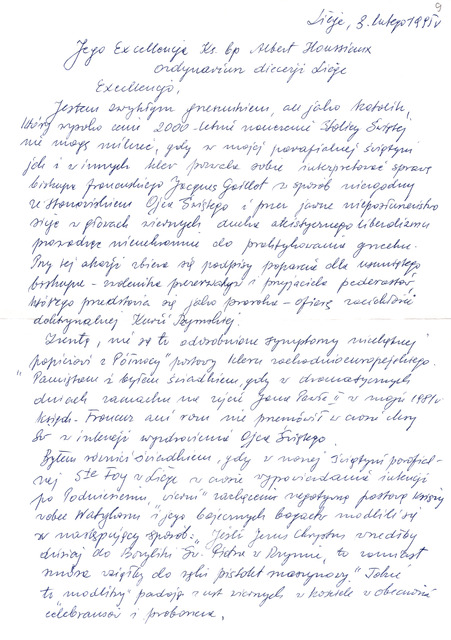 9
Liège, 3. lutego 1995r
Jego Excellencja Ks. bp Albert Houssiaux
ordynariusz diecezji Liège
Excellencjo,
Jestem zwykłym grzesznikiem, ale jako katolik,
który wysoko ceni 2000-letnie nauczanie Stolicy Świętej
nie mogę milczeć, gdy w mojej parafialnej świątyni
jak i w innych kler pozwala sobie interpretować sprawę
biskupa francuskiego Jacques Gaillot w sposób niezgodny
ze stanowiskiem Ojca Świętego i przez jawne nieposłuszeństwo
sieje w głowach wiernych ducha ateistycznego liberalizmu
prowadząc nieuchronnie do
Przy tej okazji zbiera się podpisy poparcia dla usuniętego
biskupa - zwolennika prezerwatyw i przyjaciela pederastów,
którego przedstawia się jako proroka - ofiarę zaciekłości
doktrynalnej Kurii Rzymskiej.
Zresztą, nie są to odosobnione symptomy niechętnej
"papieżowi z Północy" postawy kleru zachodnioeuropejskiego.
Pamiętam i byłem świadkiem, gdy w dramatycznych
dniach zamachu na życie Jana Pawła II w maju 1981r
ksiądz - Francuz ani razu nie przemówił w czasie Mszy
Św w intencji wyzdrowienia Ojca Świętego.
Byłem również świadkiem, gdy w naszej świątyni parafial-
nej Ste Foy w Liège w czasie wypowiadania intencji
po Podniesieniu, "wierni" zachęceni negatywną postawą księży
wobec Watykanu i jego bajecznych bogactw modlili się
w następujący sposób: "Jeśli Jezus Chrystus wszedłby
dzisiaj do Bazyliki Św. Piotra w Rzymie, to zamiast
wziąłby do ręki pistolet maszynowy." Takie
to "modlitwy" padają z ust wiernych w kościele w obecności
celebransów i proboszcza.